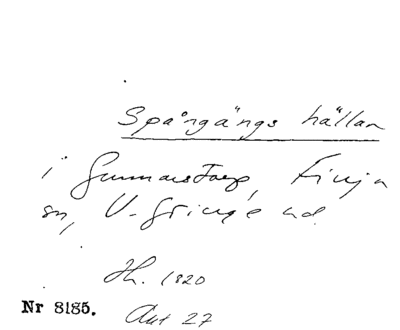 Spångängs hällan
i Gunnarstorp, Finja
sn, V. Göinge hd.
Jh. 1820
Nr 8185. Akt 27